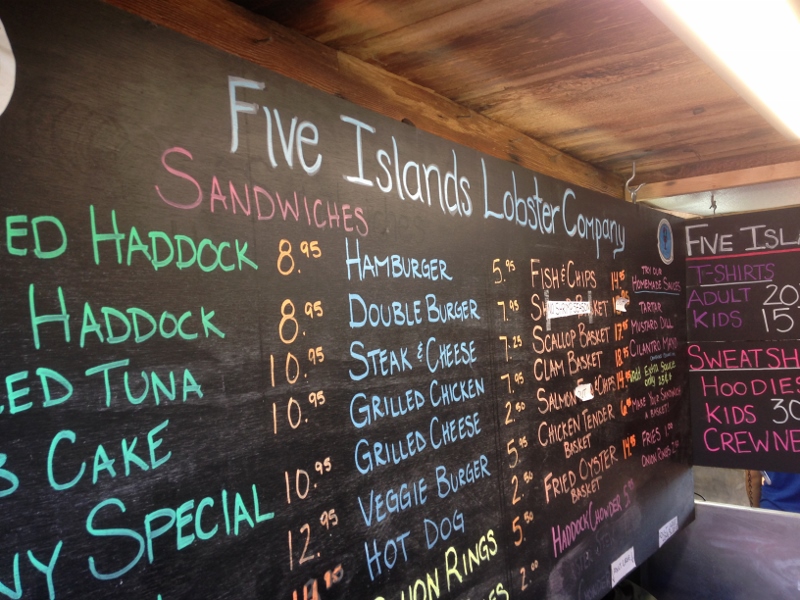 Five Islands Lobster Company
SANDWICHES
ED HADDOCK 8.95
HADDOCK 8.95
ED TUNA 10.95
CAKE 10.95
SPECIAL 10.95
12.95
HAMBURGER 5.95
DOUBLE BURGER 7.95
STEAK & CHEESE 7.25
GRILLED CHICKEN 7.95
GRILLED CHEESE 2.50
VEGGIE BURGER 5.95
HOT DOG 2.50
ONION RINGS 5.50
2.00
FISH & CHIPS
SCALLOP BASKET
CLAM BASKET 18.95
SALMON & CHIPS
CHICKEN TENDER
BASKET
FRIED OYSTER
BASKET
HADDOCK CHOWDER
TRY OUR
HOMEMADE SAUCES
TARTAR
MUSTARD DILL
CILANTRO
Add Extra Sauce
only
MAKE YOUR SANDWICH
A BASKET!
FRIES
ONION RINGS
FIVE ISLA
T-SHIRTS
ADULT 20
KIDS 15
SWEATSH
HOODIES
KIDS 30
CREWNE